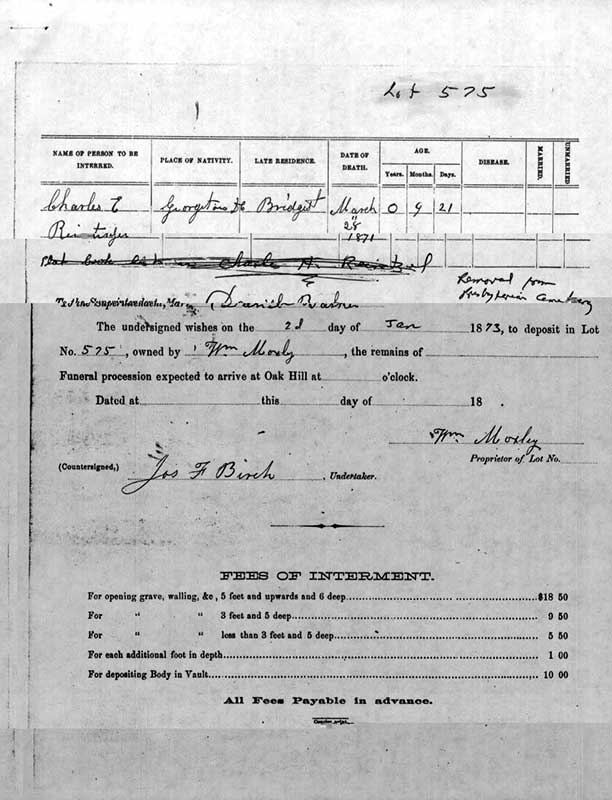 Lot 575
NAME OF PERSON TO BE INTERRED. PLACE OF NATIVITY. LATE RESIDENCE. DATE OF DEATH. AGE. DISEASE. MARRIED. UNMARRIED
Years. Months. Days.
Charles E Georgetown DC Bridget March 0 9 21
" 28
1871
Charles
Removal from
Presbyterian Cemetery
The undersigned wishes on the 2d day of Jan 1873, to deposit in Lot
No. 575, owned by Wm Moxly, the remains of
Funeral procession expected to arrive at Oak Hill at o'clock.
Dated at this day of 18 .
Wm Moxley
Proprietor of Lot No.
(Countersigned,) Jos F Birch, Undertaker.
FEES OF INTERMENT.
For opening grave, walling, &c, 5 feet and upwards and 6 deep $18 50
For " " 3 feet and 5 deep 9 50
For " " less than 3 feet and 5 deep 5 50
For each additional foot in depth 1 00
For depositing Body in Vault 10 00
All Fees Payable in advance.